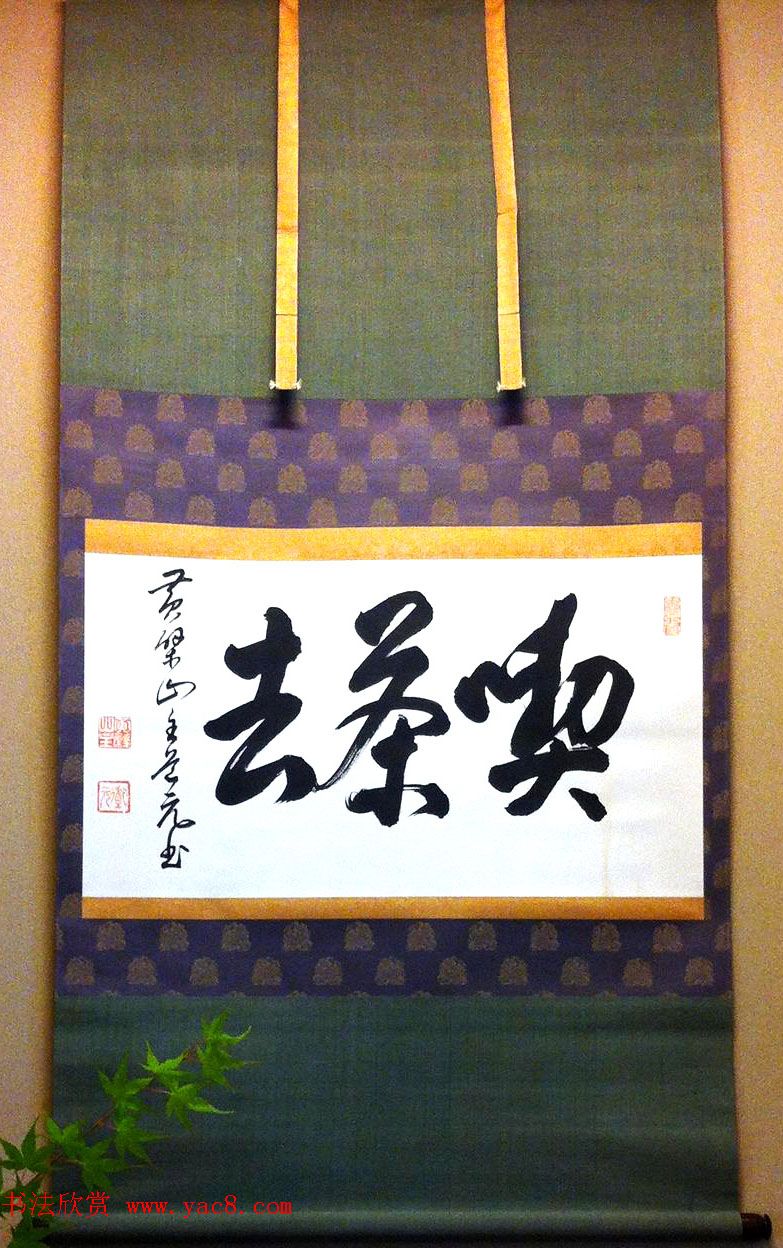 喫茶去
黄檗山主
元书
书法欣赏 www.yac8.com